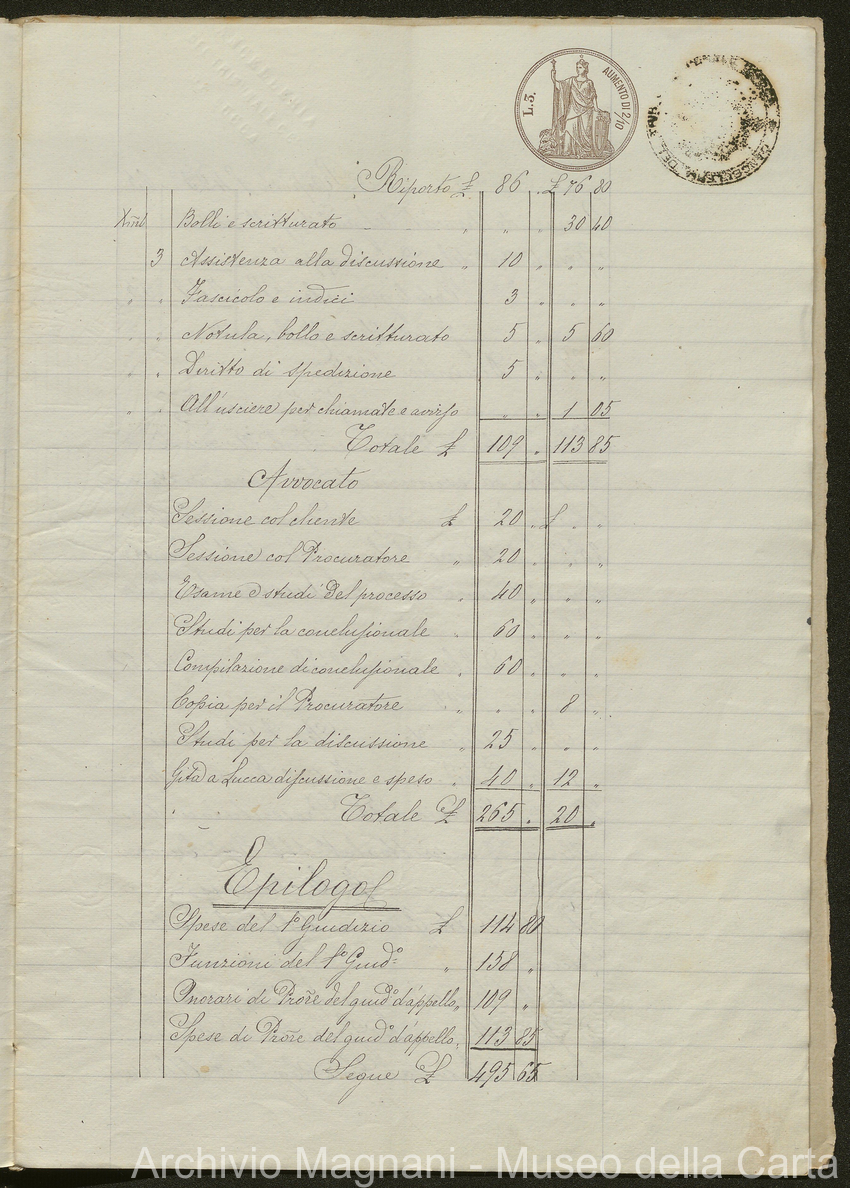 L. 3. AUMENTO DI 2/10
CANCELLERIA DEL
Riporto £ 86 " £ 76 80
Xmb Bolli e scritturato " " " 30 40
3 Assistenza alla discussione " 10 " " "
" " Fascicolo e indici 3 " " "
" " Notula, bollo e scritturato 5 " 5 60
" " Diritto di spedizione 5 " " "
" " All'usciere per chiamate e avviso " " 1 05
Totale £ 109 " 113 85
Avvocato
Sessione col cliente £ 20 " £ " "
Sessione col Procuratore " 20 " " "
Esame e studi del processo " 40 " " "
Studi per la conclusionale " 60 " " "
Compilazione di conclusionale " 60 " " "
Copia per il Procuratore " " " 8 "
Studi per la discussione " 25 " " "
Gita a Lucca discussione e spese " 40 " 12 "
Totale £ 265 " 20 "
Epilogo
Spese del 1º Giudizio £ 114 80
Funzioni del 1º Giudº " 158 "
Onorari di Prore del giudº d'appello " 109 "
Spese di Prore del giudº d'appello " 113 85
Segue £ 495 65
Archivio Magnani - Museo della Carta